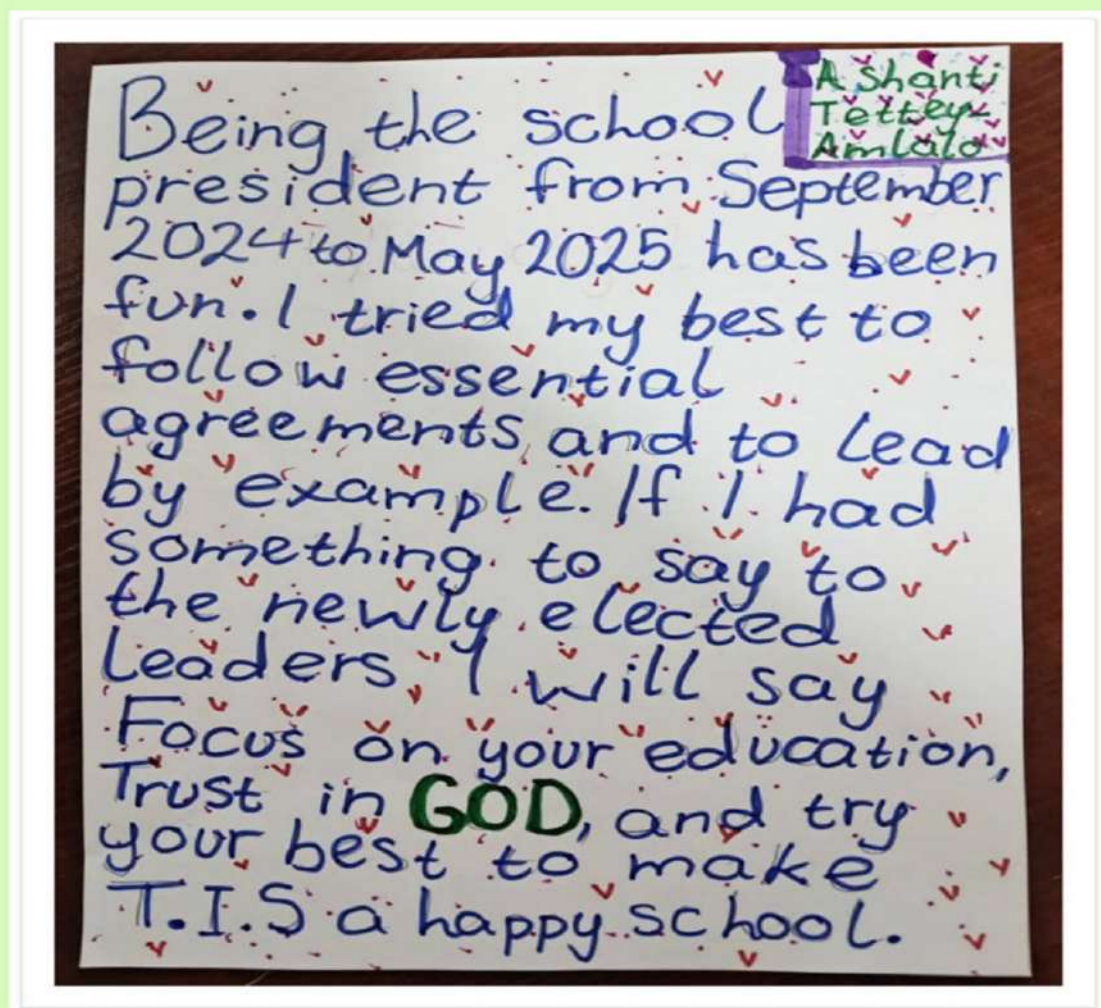 Ashanti
Tettey-
Amlalo
Being the school
president from September
2024 to May 2025 has been
fun. I tried my best to
follow essential
agreements and to lead
by example. If I had
something to say to
the newly elected
leaders, I will say
Focus on your education,
Trust in GOD, and try
your best to make
T.I.S a happy school.